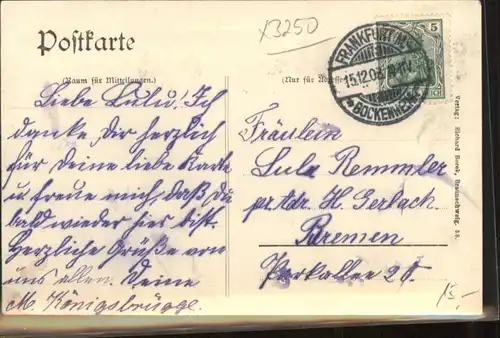 x3250
Postkarte
(Raum für Mitteilungen.)
(Nur für
Liebe Lulu! Ich
danke Dir herzlich
für Deine liebe Karte
u. freue mich, daß Du
bald wieder hier bist.
Herzliche Grüße von
uns allen. Deine
M. Königsbrügge.
FRANKFURT
15.12.08
BOCKENHEIM
5
Fräulein
Lula Remmler
pr. Adr. H. Gerlach.
Bremen
Parkallee 20.
Verlag: Richard Borek, Braunschweig.
15,-